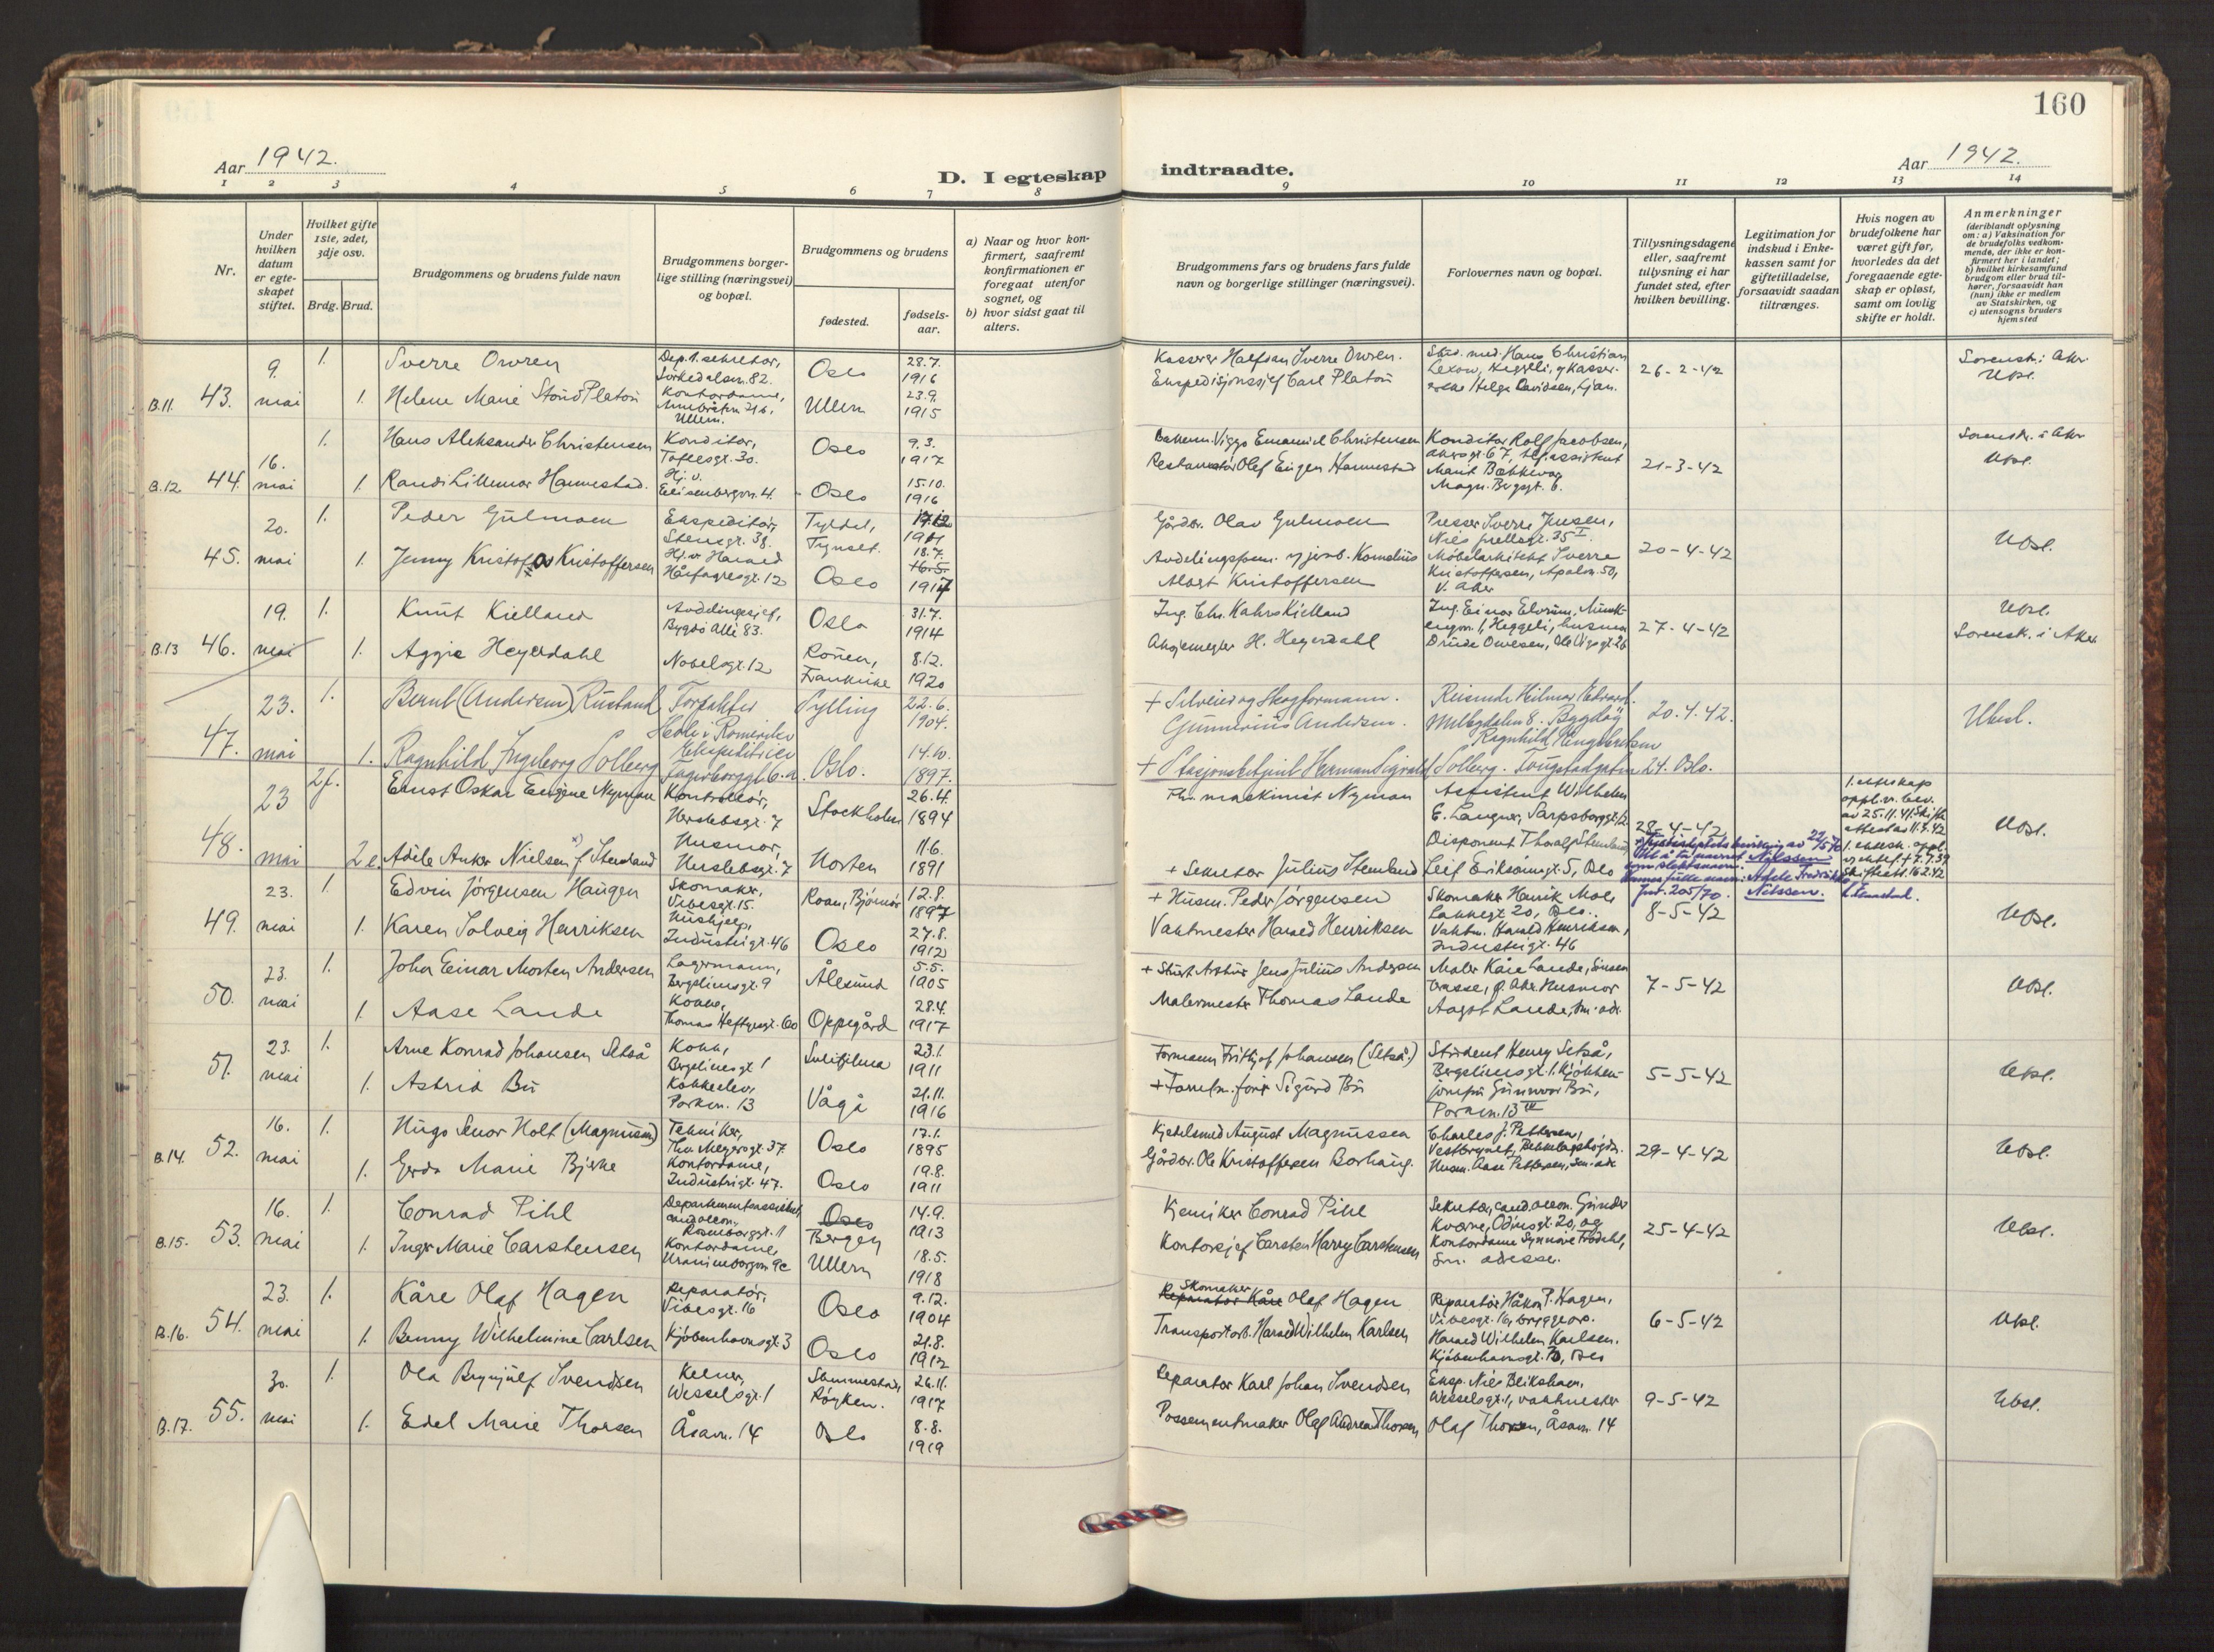 160
Aar 1942.
D. I egteskap indtraadte.
Aar 1942.
1 2 3 4 5 6 7 8 9 10 11 12 13 14
Nr.
Under hvilken datum er egteskapet stiftet.
Hvilket gifte 1ste, 2det, 3dje osv.
Brdg. Brud.
Brudgommens og brudens fulde navn
Brudgommens borgerlige stilling (næringsvei) og bopæl.
Brudgommens og brudens
fødested.
fødselsaar.
a) Naar og hvor konfirmert, saafremt konfirmationen er foregaat utenfor sognet, og
b) hvor sidst gaat til alters.
Brudgommens fars og brudens fars fulde navn og borgerlige stillinger (næringsvei).
Forlovernes navn og bopæl.
Tillysningsdagene eller, saafremt tillysning ei har fundet sted, efter hvilken bevilling.
Legitimation for indskud i Enkekassen samt for giftetilladelse, forsaavidt saadan tiltrænges.
Hvis nogen av brudefolkene har været gift før, hvorledes da det foregaaende egteskap er opløst, samt om lovlig skifte er holdt.
Anmerkninger (deriblandt oplysning om: a) Vaksination for de brudefolks vedkommende, der ikke er konfirmert her i landet; b) hvilket kirkesamfund brudgom eller brud tilhører, forsaavidt han (hun) ikke er medlem av Statskirken, og c) utensogns bruders hjemsted
B.11. 43. 9. mai
1. Sverre Owren
Dep. 1. sekretær, Sørkedalsvn. 82.
Oslo
28.7. 1916
Kasserer Halfdan Sverre Owren.
Stud. med. Hans Christian Lexow, Heggeli, og Kasser- Helge Davidsen, Ljan.
26-2-42
Sorensk. i Aker
Ubsl.
1. Helene Marie Platou
Kontordame, Ullern.
Ullern
23.9. 1915
Ekspedisjonssjef Carl Platou
B.12. 44. 16. mai
1. Hans Aleksander Christensen
Konditor, Toftesgt. 30.
Oslo
9.3. 1917
Viggo Emanuel Christensen
Konditor Rolf Jacobsen, Akersgt. 67, assistent Marit Bækkevar, Magn. Bergsgt. 6.
21-3-42
Sorensk. i Aker
Ubsl.
1. Randi Lillemor Hannestad.
Hj. v. Eilisenbergvn. 4.
Oslo
15.10. 1916
Restauratør Olef Eugen Hannestad
45. 20. mai
1. Peder Gulmoen
Ekspeditør, Stensgt. 38.
Tyldal, Tynset.
Gårdbr. Olav Gulmoen
Presser Sverre Jensen, Niels Juelsgt. 35 I.
Møbelarkitekt Sverre Kristoffersen, Apalvn. 50, V. Aker
20-4-42
Ubsl.
1. Jenny Kristoffersen
Hj. v. Harald Hårfagresgt. 12
Oslo
18.7. 1917
Avdelingsform. v/ jernb. Kornelius Albert Kristoffersen
B.13 46. 19. mai
1. Knut Kielland
Avdelingssjef, Bygdø Allé 83.
Oslo
31.7. 1914
Ing. Chr. Kahrs Kielland
Ing. Einar Elvrum, Munkengvn. 1, Heggeli, husmor Drude Owesen, Ole Vigsgt. 26
27-4-42
Ubsl.
Sorensk. i Aker
1. Aggie Heyerdahl
Nobelsgt. 12
Rouen, Frankrike
8.12. 1920
H. Heyerdahl
47. 23. mai
1. Bernt (Andersen) Rustand
Forfatter Hedli i Romerike
Sylling
22.6. 1904.
+ Selveier og Skogformann. Gunnerius Andersen.
Reisende Hilmar Edvard. Melbydalen 8. Bygdøy
Ragnhild Engebretsen
20.4.42.
Ubsl.
1. Ragnhild Ingeborg Solberg
Ekspeditrice Fagerborggt. 6.a.
Oslo.
14.10. 1897.
+ Stasjonsbetjent Herman Sigvald Solberg. Tougstadgaten 24. Oslo.
48. 23 mai
2 f. Ernst Oskar Eugene Nyman
Kontrollør, Herslebsgt. 7
Stockholm
26.4. 1894
maskinist Nyman
Assistent Wilhelm E. Langner, Sarpsborggt. 2.
Disponent Thoralf Stenslund, Leif Eriksønsgt. 5, Oslo
28-4-42.
1. ekteskap oppl. v. bev. av 25.11.41. Skifteattest av 11.4.42
Ubsl.
2 e. Adele Anker Nielsen f. Stenslund
Husmor, Herslebsgt. 7
Horten
11.6. 1891
+ Sekretær Julius Stenslund
til å ta navnet Nilssen som slektsnavn.
Jnr. 205/70. Nilssen.
49. 23. mai
1. Edvin Jørgensen Haugen
Skomaker, Vibesgt. 15.
Roan, Bjørnør
12.8. 1897
+ Husm. Peder Jørgensen
Skomaker Henrik Moe, Lakkegt. 20, Oslo.
Vaktm. Harald Henriksen, Industrigt. 46
8-5-42
Ubsl.
1. Karen Solveig Henriksen
Hushjelp, Industrigt. 46
Oslo
27.8. 1912
Vaktmester Harald Henriksen
50. 23. mai
1. Johan Einar Morten Andersen
Lagermann, Bergsliensgt. 9
Ålesund
5.5. 1905
Jens Julius Andersen
Maler Kåre Lande, Sinsen terrasse, Ø. Aker. Husmor Aagot Lande, sm. adr.
7-5-42
Ubsl.
1. Aase Lande
Kokke, Thomas Heftyesgt. 60
Oppegård
28.4. 1917
Malermester Thomas Lande
51. 23. mai
1. Arne Konrad Johansen Setså
Kokk, Bergsliensgt. 1
Sulitjelma
23.1. 1911
Formann Fritjof Johansen (Setså)
Student Henry Setså, Bergsliensgt. 1. Kjøkkenjomfru Gunnvor Bu, Parkvn. 13 IV
5-5-42
Ubsl.
1. Astrid Bu
Kokkeelev, Parkvn. 13
Vågå
21.11. 1916
Sigurd Bu
B.14. 52. 16. mai
1. Hugo Senor Holt (Magnussen)
Tekniker, Thv. Meyersgt. 37.
Oslo
17.1. 1895
Kjedelsmed August Magnussen
Charles J. Pettersen, Vestbrynet, Bekkelagshøgda.
Husm. Aase Pettersen, sm. adr.
29-4-42
Ubsl.
1. Gerda Marie Bjerke
Kontordame, Industrigt. 47.
Oslo
19.8. 1911
Gårdbr. Ole Kristoffersen Borhaug.
B.15. 53. 16. mai
1. Conrad Pihl
Departementsassistent, cand. oecon., Rosenborggt. 1
Oslo Bergen
14.9. 1913
Kjemiker Conrad Pihl
Sekretær, cand. oecon. Gunder Kværne, Odinsgt. 20, og Kontordame Synnøve Frødahl, sm. adresse.
25-4-42
Ubsl.
1. Inger Marie Carstensen
Kontordame, Uranienborgvn. 9c
Ullern
18.5. 1918
Kontorsjef Carsten Harry Carstensen
B.16. 54. 23. mai
1. Kåre Olaf Hagen
Reparatør, Vibesgt. 16
Oslo
9.12. 1904
Skomaker
Reparatør Kåre Olaf Hagen
Reparatør Håkon P. Hagen, Vibesgt. 16, bryggearb. Harald Wilhelm Karlsen. Kjøbenhavnsgt. 3, Oslo
6-5-42
Ubsl.
1. Benny Wilhelmine Carlsen
Kjøbenhavnsgt. 3
Oslo
21.8. 1912
Transportarb. Harald Wilhelm Karlsen
B.17. 55. 30. mai
1. Ola Brynjulf Svendsen
Kelner, Wesselsgt. 1
Slemmestad, Røyken.
26.11. 1917
Reparatør Karl Johan Svendsen
Eksp. Nils Blikshavn, Wesselsgt. 1, vaktmester Olaf Thorsen, Åsavn. 14
9-5-42
Ubsl.
1. Edel Marie Thorsen
Åsavn. 14
Oslo
8.8. 1919
Possementmaker Olaf Andreas Thorsen